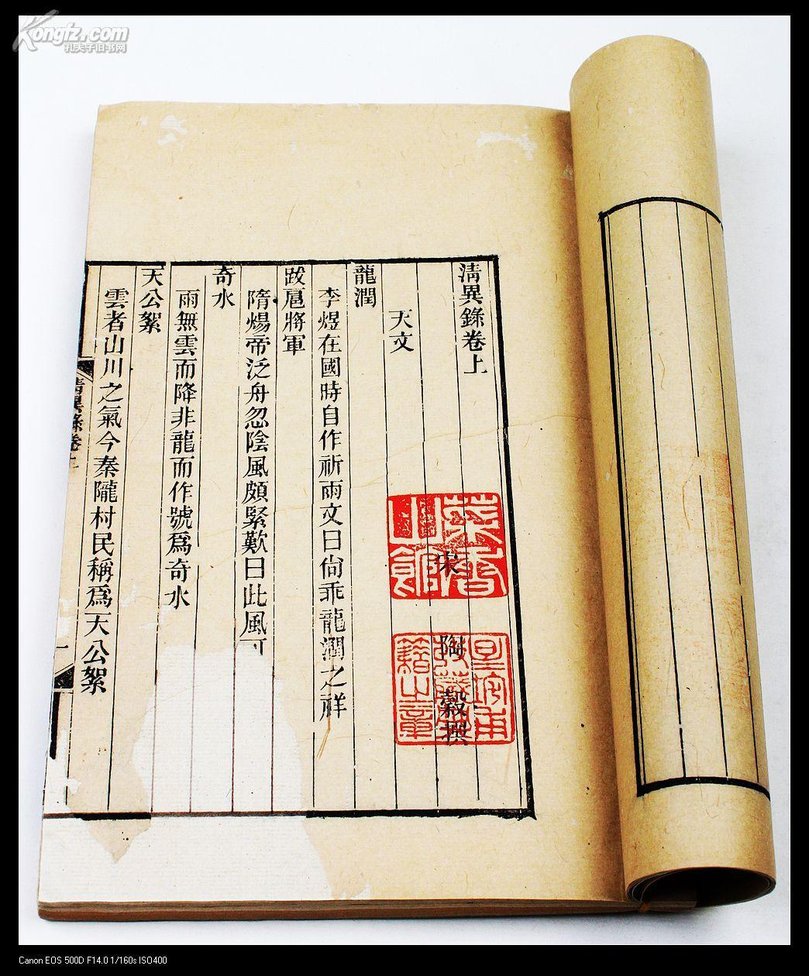 Kongfz.com
孔夫子旧书网
清異錄卷上
宋 陶穀撰
天文
龍潤
李煜在國時自作祈雨文曰尙乖龍潤之祥
跋扈將軍
隋煬帝泛舟忽陰風頗緊歎曰此風可
奇水
雨無雲而降非龍而作號爲奇水
天公絮
雲者山川之氣今秦隴村民稱爲天公絮
清異錄卷上
一
Canon EOS 500D F14.0 1/160s ISO400